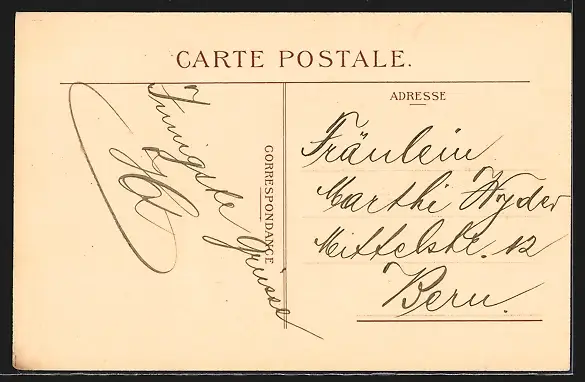 CARTE POSTALE.
CORRESPONDANCE
Innigste Grüsse
ADRESSE
Fräulein
Marthi Wyder
Mittelstr. 12
Bern.